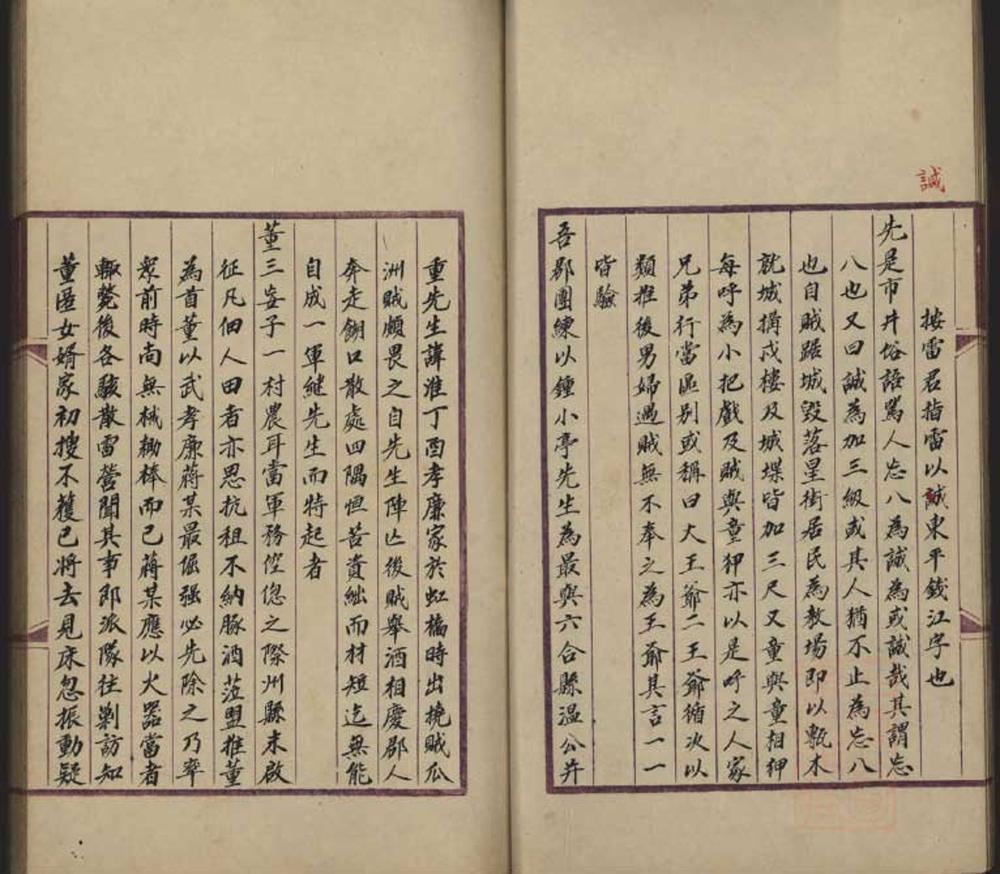 誠
按雷君指雷以誠東平錢江字也
先是市井俗語罵人忘八為誠為或誠哉其謂忘
八也又曰誠為加三級或其人猶不止為忘八
也自賊踞城毀落星街居民為教場即以甎木
就城搆戍樓及城堞皆加三尺又童與童相狎
每呼為小把戲及賊與童狎亦以是呼之人家
兄弟行當區別或稱曰大王爺二王爺循次以
類推後男婦遇賊無不奉之為王爺其言一一
皆驗
吾郡團練以鍾小亭先生為最與六合縣溫公并
重先生諱淮丁酉孝廉家於虹橋時出撓賊瓜
洲賊頗畏之自先生陣亡後賊舉酒相慶郡人
奔走餬口散處四隅恒苦貲絀而材短迄無能
自成一軍繼先生而特起者
董三妄子一村農耳當軍務倥傯之際州縣未啟
征凡佃人田者亦思抗租不納豚酒蒞盟推董
為首董以武孝廉蔣某最倔强必先除之乃率
眾前時尚無械耡棒而已蔣某應以火器當者
輒斃後各駭散雷營聞其事即派隊往剿訪知
董匿女婿家初搜不獲已將去見床忽振動疑